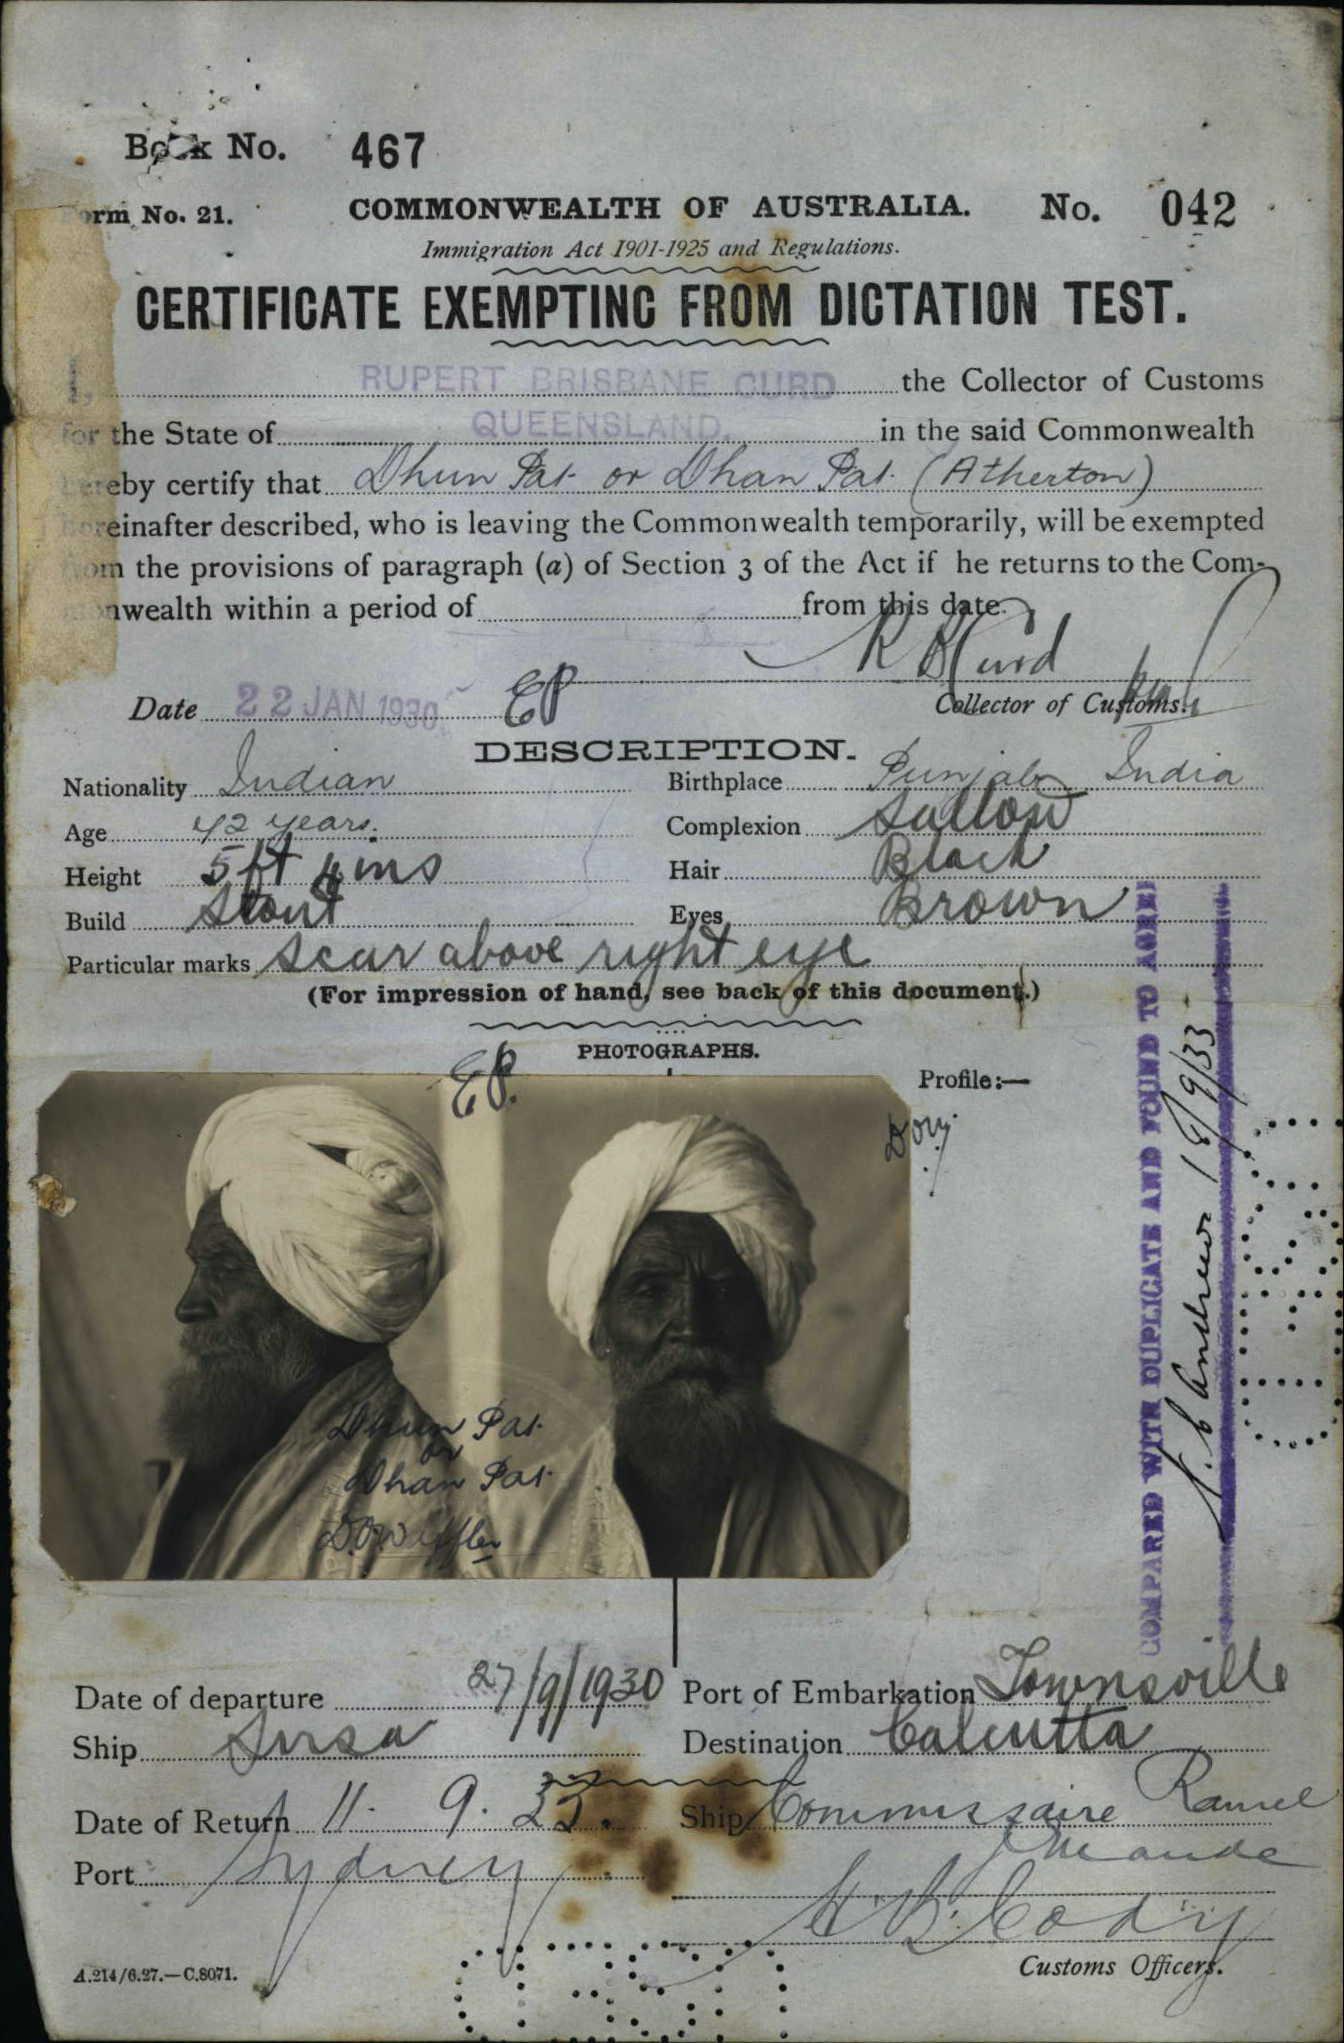 Book No. 467
Form No. 21. COMMONWEALTH OF AUSTRALIA. No. 042
Immigration Act 1901-1925 and Regulations.
CERTIFICATE EXEMPTING FROM DICTATION TEST.
I, RUPERT BRISBANE CURD the Collector of Customs
for the State of QUEENSLAND. in the said Commonwealth
hereby certify that Dhun Pat or Dhan Pat (Atherton)
hereinafter described, who is leaving the Commonwealth temporarily, will be exempted
from the provisions of paragraph (a) of Section 3 of the Act if he returns to the Com-
monwealth within a period of from this date.
R B Curd
Date 22 JAN 1930 EP Collector of Customs.
DESCRIPTION.
Nationality Indian Birthplace Punjab India
Age 42 years. Complexion Sallow
Height 5 ft 4 ins Hair Black
Build Stout Eyes Brown
Particular marks scar above right eye
(For impression of hand, see back of this document.)
PHOTOGRAPHS.
EP.
Profile:—
Dhun Pat
or
Dhan Pat
COMPARED WITH DUPLICATE AND FOUND TO AGREE
Andrews 18/9/33
Date of departure 27/9/1930 Port of Embarkation Townsville
Ship Sirsa Destination Calcutta
Date of Return 11. 9. 33. Ship Commissaire Ramel
Port Sydney
Cody
A.214/6.27.—C.8071. Customs Officers.